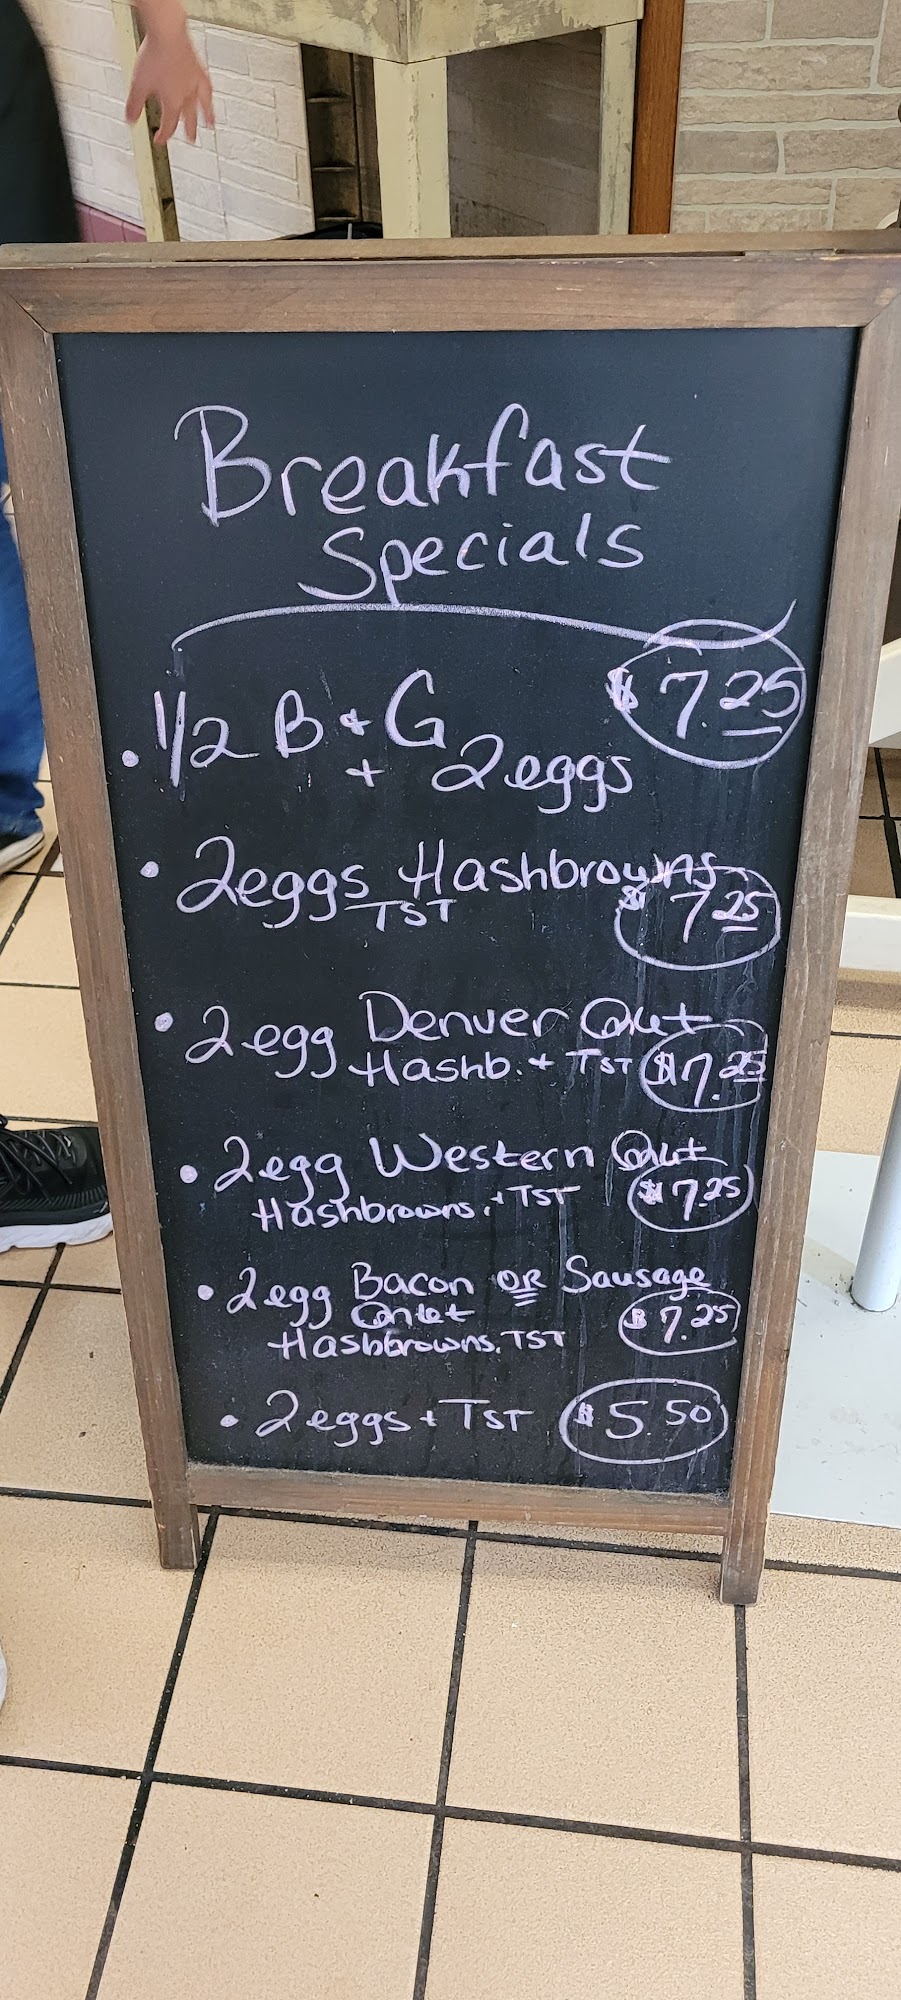 Breakfast
Specials
• 1/2 B + G $7.25
+ 2 eggs
• 2 eggs Hashbrowns
TST $7.25
• 2 egg Denver Omlt
Hashb. + TST $7.25
• 2 egg Western Omlt
Hashbrowns. + TST $7.25
• 2 egg Bacon OR Sausage
Omlet $7.25
Hashbrowns. TST
• 2 eggs + TST $5.50